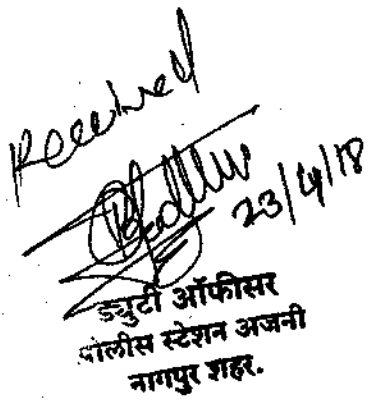 Received
23/4/18
ड्युटी ऑफीसर
पोलीस स्टेशन अजनी
नागपुर शहर.